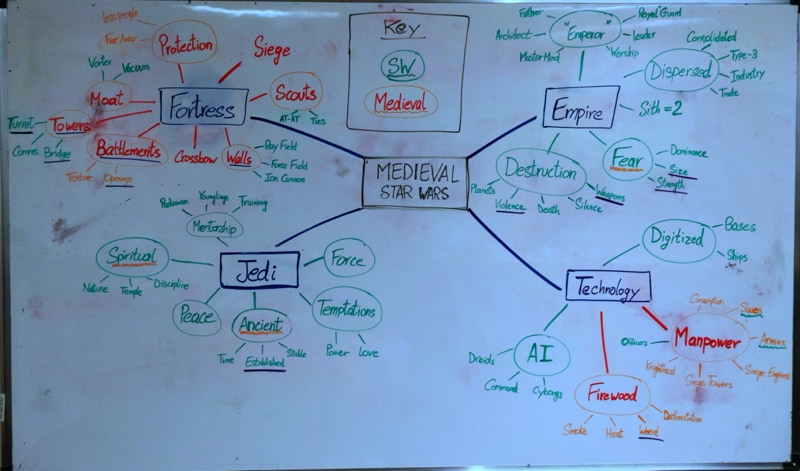 less people
Far Away
Protection
Siege
Vortex
Vacuum
Moat
Fortress
Scouts
AT-AT
Ties
Turret
Towers
Comms
Bridge
Battlements
Texture
Openings
Crossbow
Walls
Ray Field
Force Field
Ion Cannon
Key
SW
Medieval
MEDIEVAL
STAR WARS
Father
Royal Guard
Architect
"Emperor"
Leader
Master Mind
Worship
Consolidated
Type-3
Dispersed
Industry
Trade
Empire
Sith = 2
Destruction
Planets
Violence
Death
Silence
Weapons
Fear
Dominance
Size
Strength
Padawan
Younglings
Training
Mentorship
Spiritual
Nature
Temple
Discipline
Jedi
Force
Peace
Ancient
Time
Established
Stable
Temptations
Power
Love
Digitized
Bases
Ships
Technology
AI
Droids
Command
Cyborgs
Firewood
Smoke
Heat
Wood
Manpower
Slaves
Officers
Armies
Knighthood
Siege Towers
Siege Engines